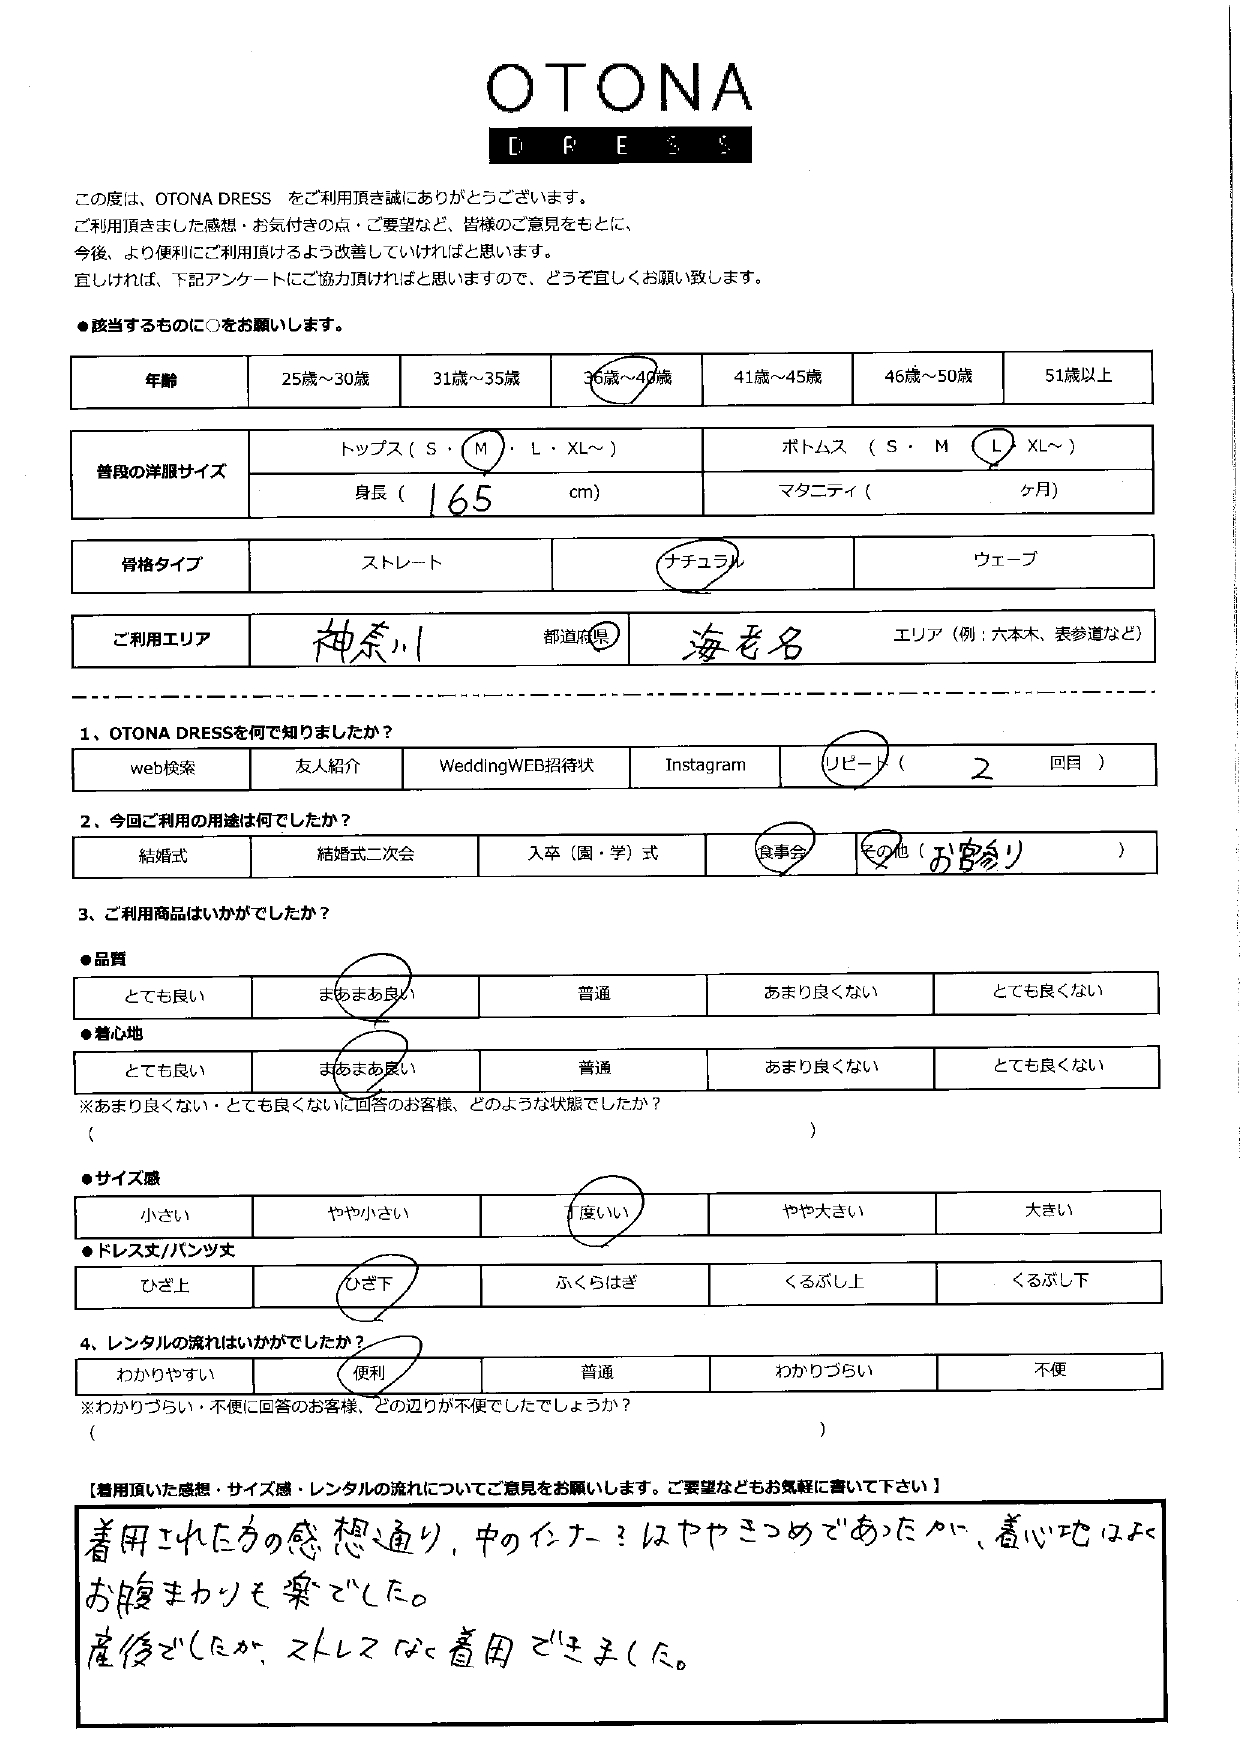 OTONA
DRESS
この度は、OTONA DRESS をご利用頂き誠にありがとうございます。
ご利用頂きました感想・お気付きの点・ご要望など、皆様のご意見をもとに、
今後、より便利にご利用頂けるよう改善していければと思います。
宜しければ、下記アンケートにご協力頂ければと思いますので、どうぞ宜しくお願い致します。
●該当するものに○をお願いします。
年齢 25歳～30歳 31歳～35歳 36歳～40歳 41歳～45歳 46歳～50歳 51歳以上
普段の洋服サイズ トップス ( S ・ M ・ L ・ XL～ ) ボトムス ( S ・ M L XL～ )
身長 ( 165 cm) マタニティ ( ケ月)
骨格タイプ ストレート ナチュラル ウェーブ
ご利用エリア 神奈川 都道府県 海老名 エリア（例：六本木、表参道など）
1、OTONA DRESSを何で知りましたか？
web検索 友人紹介 WeddingWEB招待状 Instagram リピート ( 2 回目 )
2、今回ご利用の用途は何でしたか？
結婚式 結婚式二次会 入卒（園・学）式 食事会 その他 ( お宮参り )
3、ご利用商品はいかがでしたか？
●品質
とても良い まあまあ良い 普通 あまり良くない とても良くない
●着心地
とても良い まあまあ良い 普通 あまり良くない とても良くない
※あまり良くない・とても良くないに回答のお客様、どのような状態でしたか？
( )
●サイズ感
小さい やや小さい 丁度いい やや大きい 大きい
●ドレス丈/パンツ丈
ひざ上 ひざ下 ふくらはぎ くるぶし上 くるぶし下
4、レンタルの流れはいかがでしたか？
わかりやすい 便利 普通 わかりづらい 不便
※わかりづらい・不便に回答のお客様、どの辺りが不便でしたでしょうか？
( )
【着用頂いた感想・サイズ感・レンタルの流れについてご意見をお願いします。ご要望などもお気軽に書いて下さい 】
着用された方の感想通り、中のインナー？はややきつめであったが、着心地はよく
お腹まわりも楽でした。
産後でしたが、ストレスなく着用できました。